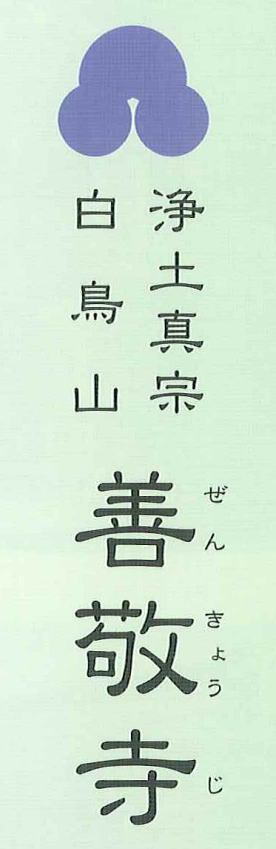 浄土真宗
白鳥山
善敬寺
ぜんきょうじ